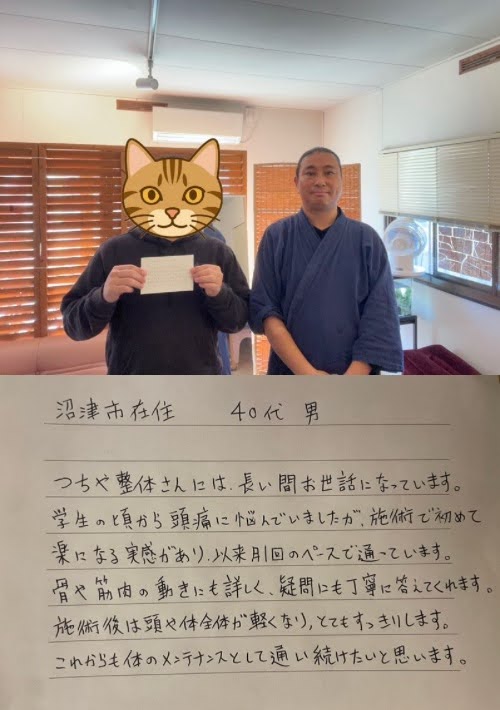 沼津市在住　40代　男
つちや整体さんには、長い間お世話になっています。
学生の頃から頭痛に悩んでいましたが、施術で初めて
楽になる実感があり、以来月1回のペースで通っています。
骨や筋肉の動きにも詳しく、疑問にも丁寧に答えてくれます。
施術後は頭や体全体が軽くなり、とてもすっきりします。
これからも体のメンテナンスとして通い続けたいと思います。